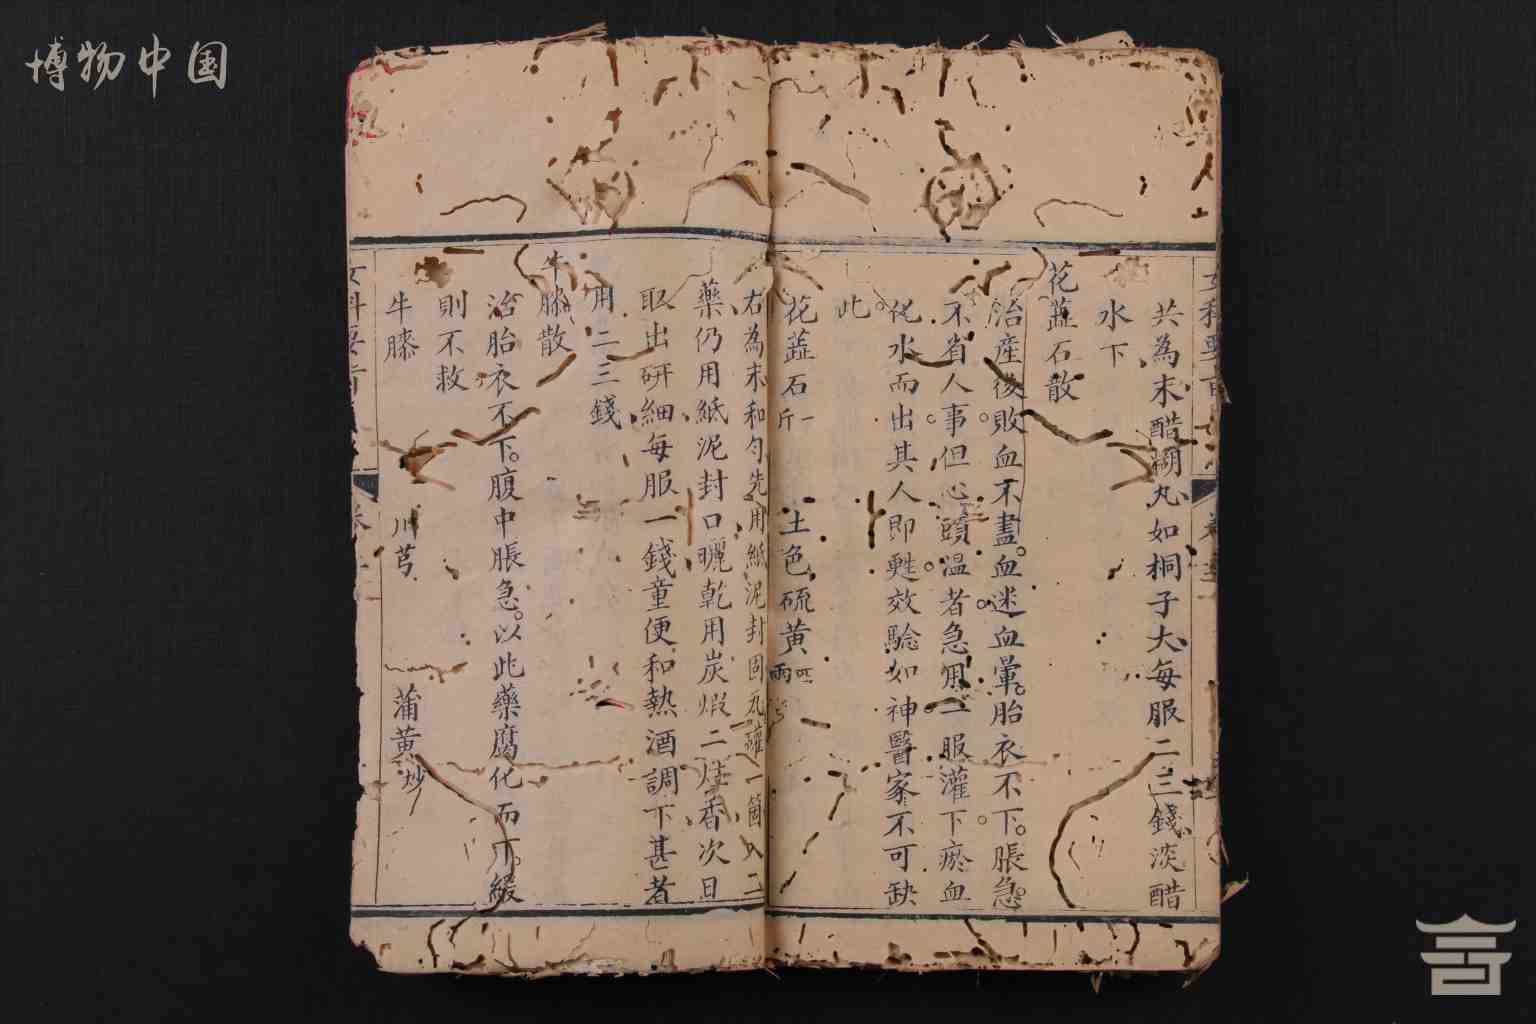 博物中国
共為末醋糊丸如桐子大每服二三錢淡醋
水下
花蕋石散
治產後敗血不盡血迷血暈胎衣不下脹急
不省人事但心頭温者急用一服灌下瘀血
化水而出其人即甦效驗如神醫家不可缺
此
花蕋石一斤 土色硫黄四兩
右為末和匀先用紙泥封固瓦罐一箇入二
藥仍用紙泥封口曬乾用炭煆二炷香次日
取出研細每服一錢童便和熱酒調下甚者
用二三錢
牛膝散
治胎衣不下腹中脹急以此藥腐化而下緩
則不救
牛膝 川芎 蒲黄炒
女科